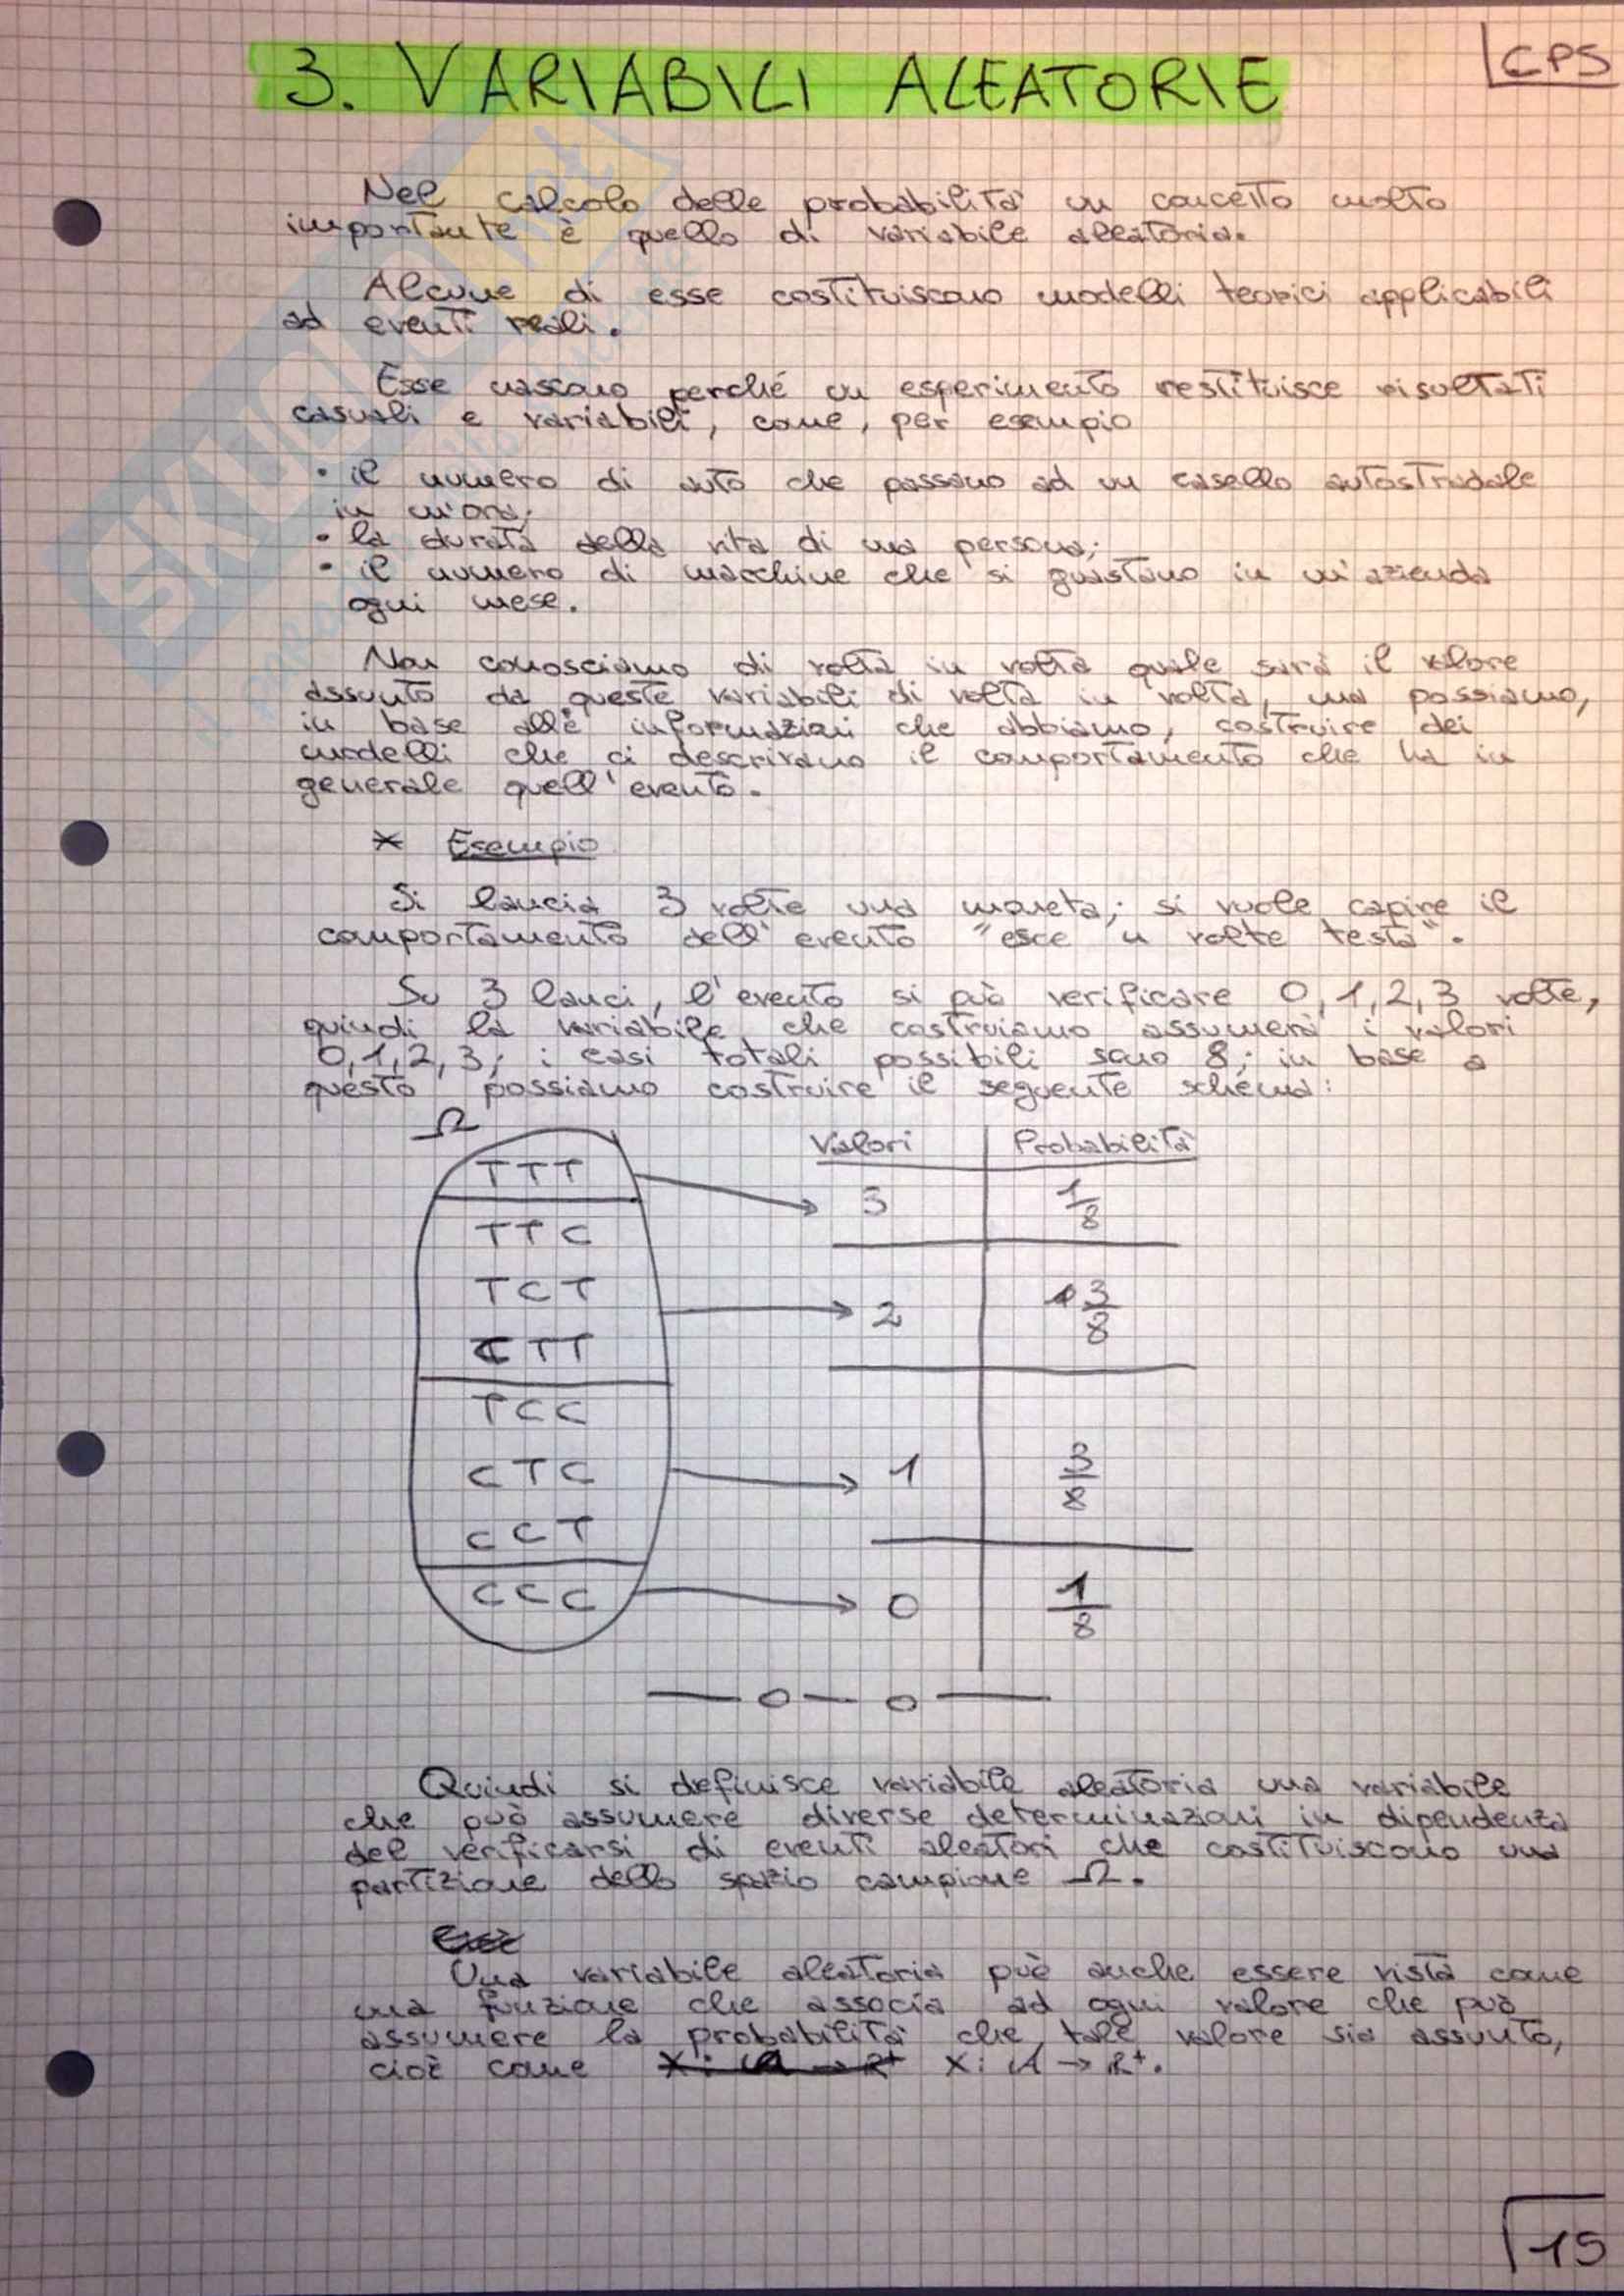 3. VARIABILI ALEATORIE
CPS
Nel calcolo delle probabilità un concetto molto
importante è quello di variabile aleatoria.
Alcune di esse costituiscono modelli teorici applicabili
ad eventi reali.
Esse nascono perché un esperimento restituisce risultati
casuali e variabili, come, per esempio
• il numero di auto che passano ad un casello autostradale
in un'ora;
• la durata della vita di una persona;
• il numero di macchine che si guastano in un'azienda
ogni mese.
Non conosciamo di volta in volta quale sarà il valore
assunto da queste variabili di volta in volta, ma possiamo,
in base alle informazioni che abbiamo, costruire dei
modelli che ci descrivano il comportamento che ha in
generale quell'evento.
* Esempio
Si lancia 3 volte una moneta; si vuole capire il
comportamento dell'evento "esce n volte testa".
Su 3 lanci, l'evento si può verificare 0, 1, 2, 3 volte,
quindi la variabile che costruiamo assumerà i valori
0, 1, 2, 3; i casi totali possibili sono 8; in base a
questo possiamo costruire il seguente schema:
Ω Valori Probabilità
TTT 3 1/8
TTC
TCT 2 3/8
CTT
TCC
CTC 1 3/8
CCT
CCC 0 1/8
Quindi si definisce variabile aleatoria una variabile
che può assumere diverse determinazioni in dipendenza
del verificarsi di eventi aleatori che costituiscono una
partizione dello spazio campione Ω.
Una variabile aleatoria può anche essere vista come
una funzione che associa ad ogni valore che può
assumere la probabilità che tale valore sia assunto,
cioè come X: A → R⁺.
15